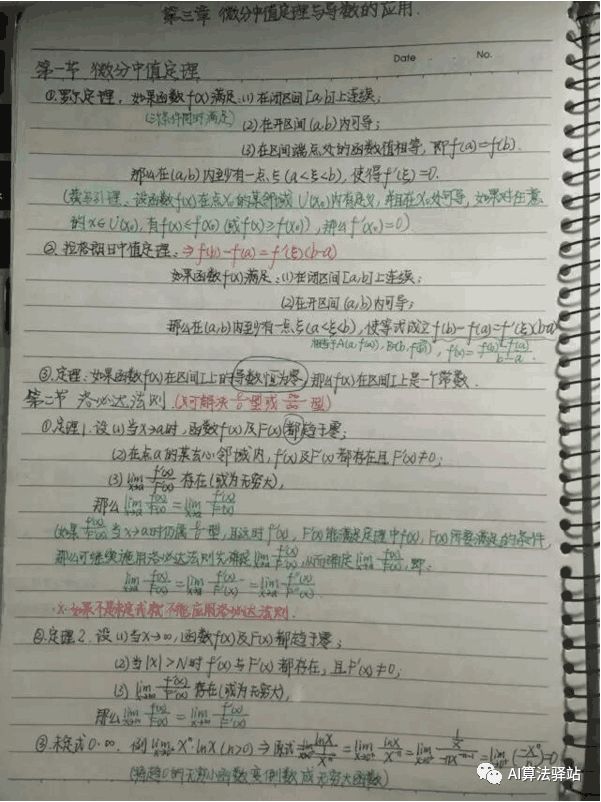 第三章 微分中值定理与导数的应用.
Date · No.
第一节 微分中值定理
①罗尔定理. 如果函数f(x)满足:(1)在闭区间[a,b]上连续;
(三条件同时满足) (2)在开区间(a,b)内可导;
(3)在区间端点处的函数值相等,即f(a)=f(b).
那么在(a,b)内至少有一点ξ(a<ξ<b),使得f'(ξ)=0.
(费马引理、设函数f(x)在点x₀的某邻域U(x₀)内有定义,并且在x₀处可导,如果对任意
的x∈U(x₀),有f(x)≤f(x₀)(或f(x)≥f(x₀)),那么f'(x₀)=0)
②拉格朗日中值定理:⇒f(b)-f(a)=f'(ξ)(b-a)
如果函数f(x)满足:(1)在闭区间[a,b]上连续;
(2)在开区间(a,b)内可导;
那么在(a,b)内至少有一点ξ(a<ξ<b),使等式成立f(b)-f(a)=f'(ξ)(b-a)
A(a,f(a)),B(b,f(b)),
③定理:如果函数f(x)在区间I上的导数恒为零,那么f(x)在区间I上是一个常数.
第二节 洛必达法则(只可解决0/0型或∞/∞型)
①定理1.设(1)当x→a时,函数f(x)及F(x)都趋于零;
(2)在点a的某去心邻域内,f'(x)及F'(x)都存在且F'(x)≠0;
(3) lim x→a f'(x)/F'(x) 存在(或为无穷大),
那么 lim x→a f(x)/F(x) = lim x→a f'(x)/F'(x)
(如果 f'(x)/F'(x) 当x→a时仍属0/0型,且这时f'(x)、F'(x)能满足定理中f(x)、F(x)所要满足的条件,
那么可继续施用洛必达法则先确定 lim x→a f'(x)/F'(x),从而确定 lim x→a f(x)/F(x),即:
lim x→a f(x)/F(x) = lim x→a f'(x)/F'(x) = lim x→a f''(x)/F''(x)
※如果不是未定式就不能应用洛必达法则.
②定理2. 设(1)当x→∞,函数f(x)及F(x)都趋于零;
(2)当|x|>N时f'(x)与F'(x)都存在,且F'(x)≠0;
(3) lim x→∞ f'(x)/F'(x) 存在(或为无穷大),
那么 lim x→∞ f(x)/F(x) = lim x→∞ f'(x)/F'(x)
③未定式0·∞,例 lim xⁿ·lnx (n>0) ⇒
(将趋0的无穷小函数变倒数成无穷大函数)
AI算法驿站